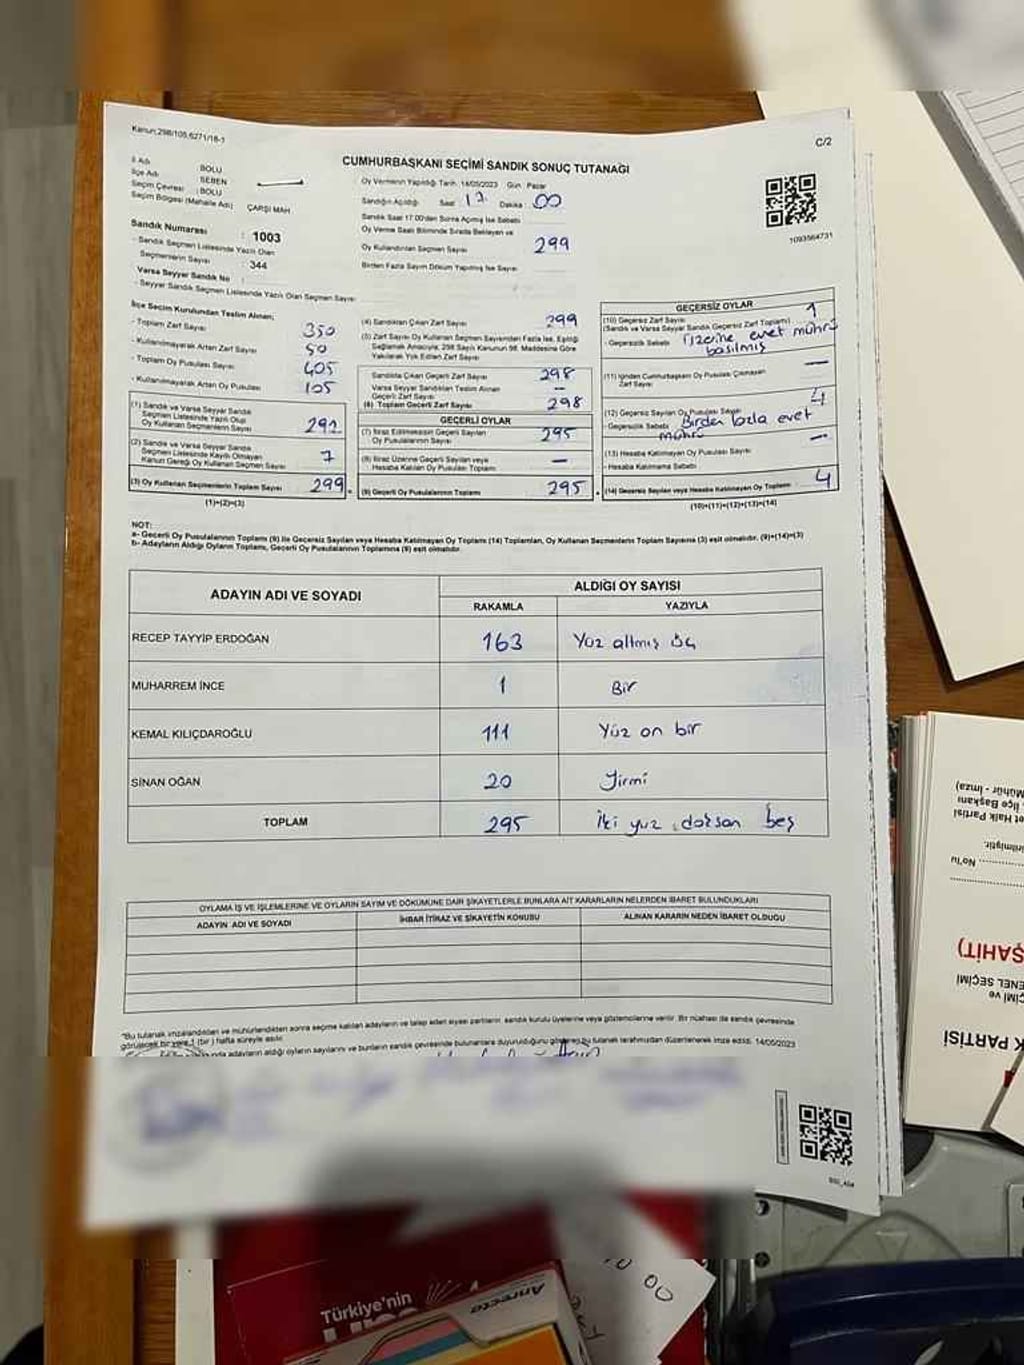 Kanun;298/105,6271/16-1
C/2
CUMHURBAŞKANI SEÇİMİ SANDIK SONUÇ TUTANAĞI
İl Adı : BOLU
İlçe Adı : SEBEN
Seçim Çevresi : BOLU
Seçim Bölgesi (Mahalle Adı) ÇARŞI MAH
Sandık Numarası : 1003
- Sandık Seçmen Listesinde Yazılı Olan
Seçmenlerin Sayısı : 344
Varsa Seyyar Sandık No :
- Seyyar Sandık Seçmen Listesinde Yazılı Olan Seçmen Sayısı
Oy Vermenin Yapıldığı Tarih: 14/05/2023 Gün: Pazar
Sandığın Açıldığı Saat 17 Dakika: 00
Sandık Saat 17:00'den Sonra Açılmış İse Sebebi
Oy Verme Saati Bitiminde Sırada Bekleyen ve
Oy Kullandırılan Seçmen Sayısı 299
Birden Fazla Sayım Döküm Yapılmış İse Sayısı
1093564731
İlçe Seçim Kurulundan Teslim Alınan;
- Toplam Zarf Sayısı 350
- Kullanılmayarak Artan Zarf Sayısı 50
- Toplam Oy Pusulası Sayısı 405
- Kullanılmayarak Artan Oy Pusulası 105
(1) Sandık ve Varsa Seyyar Sandık
Seçmen Listesinde Yazılı Olup
Oy Kullanan Seçmenlerin Sayısı 292
(2) Sandık ve Varsa Seyyar Sandık
Seçmen Listesinde Kayıtlı Olmayan
Kanun Gereği Oy Kullanan Seçmen Sayısı 7
(3) Oy Kullanan Seçmenlerin Toplam Sayısı 299
(1)+(2)=(3)
(4) Sandıktan Çıkan Zarf Sayısı 299
(5) Zarf Sayısı Oy Kullanan Seçmen Sayısından Fazla İse, Eşitliği
Sağlamak Amacıyla, 298 Sayılı Kanunun 98. Maddesine Göre
Yakılarak Yok Edilen Zarf Sayısı
Sandıkta Çıkan Geçerli Zarf Sayısı 298
Varsa Seyyar Sandıktan Teslim Alınan
Geçerli Zarf Sayısı –
(6) Toplam Geçerli Zarf Sayısı 298
GEÇERLİ OYLAR
(7) İtiraz Edilmeksizin Geçerli Sayılan
Oy Pusulalarının Sayısı 295
(8) İtiraz Üzerine Geçerli Sayılan veya
Hesaba Katılan Oy Pusulası Toplamı –
(9) Geçerli Oy Pusulalarının Toplamı 295
GEÇERSİZ OYLAR
(10) Geçersiz Zarf Sayısı 1
(Sandık ve Varsa Seyyar Sandık Geçersiz Zarf Toplamı)
- Geçersizlik Sebebi Üzerine evet mührü
basılmış
(11) İçinden Cumhurbaşkanı Oy Pusulası Çıkmayan
Zarf Sayısı –
(12) Geçersiz Sayılan Oy Pusulası Sayısı 4
- Geçersizlik Sebebi Birden fazla evet
mührü
(13) Hesaba Katılmayan Oy Pusulası Sayısı –
- Hesaba Katılmama Sebebi
(14) Geçersiz Sayılan veya Hesaba Katılmayan Oy Toplamı 4
(10)+(11)+(12)+(13)=(14)
NOT:
a- Geçerli Oy Pusulalarının Toplamı (9) ile Geçersiz Sayılan veya Hesaba Katılmayan Oy Toplamı (14) Toplamları, Oy Kullanan Seçmenlerin Toplam Sayısına (3) eşit olmalıdır. (9)+(14)=(3)
b- Adayların Aldığı Oyların Toplamı, Geçerli Oy Pusulalarının Toplamına (9) eşit olmalıdır.
ADAYIN ADI VE SOYADI ALDIĞI OY SAYISI
RAKAMLA YAZIYLA
RECEP TAYYİP ERDOĞAN 163 Yüz altmış üç
MUHARREM İNCE 1 Bir
KEMAL KILIÇDAROĞLU 111 Yüz on bir
SİNAN OĞAN 20 Yirmi
TOPLAM 295 İki yüz doksan beş
OYLAMA İŞ VE İŞLEMLERİNE VE OYLARIN SAYIM VE DÖKÜMÜNE DAİR ŞİKAYETLERLE BUNLARA AİT KARARLARIN NELERDEN İBARET BULUNDUKLARI
ADAYIN ADI VE SOYADI İHBAR İTİRAZ VE ŞİKAYETİN KONUSU ALINAN KARARIN NEDEN İBARET OLDUĞU
"Bu tutanak imzalandıktan ve mühürlendikten sonra seçime katılan adayların ve talep eden siyasi partilerin sandık kurulu üyelerine veya gözlemcilerine verilir. Bir nüshası da sandık çevresinde
görülecek bir yere 1 (bir) hafta süreyle asılır.
adayların aldığı oyların sayılarını ve bunların sandık çevresinde bulunanlara duyurulduğunu gösteren bu tutanak tarafımızdan düzenlenerek imza edildi. 14/05/2023
Mühür - İmza)
İlçe Başkanı
et Halk Partisi
No'lu
ŞAHİT)
ENEL SEÇİMİ
ÇİMİ ve
K PARTİSİ
Türkiye'nin
00